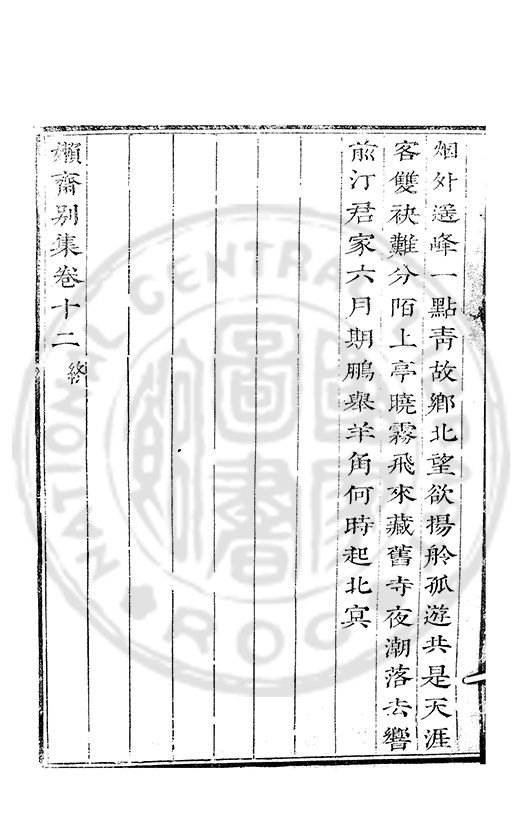 烟外遥峰一點青故鄉北望欲揚舲孤遊共是天涯
客雙袂難分陌上亭曉霧飛來藏舊寺夜潮落去響
前汀君家六月期鵬舉羊角何時起北㝠
嬾齋别集卷十二 終
NATIONAL CENTRAL
ROC